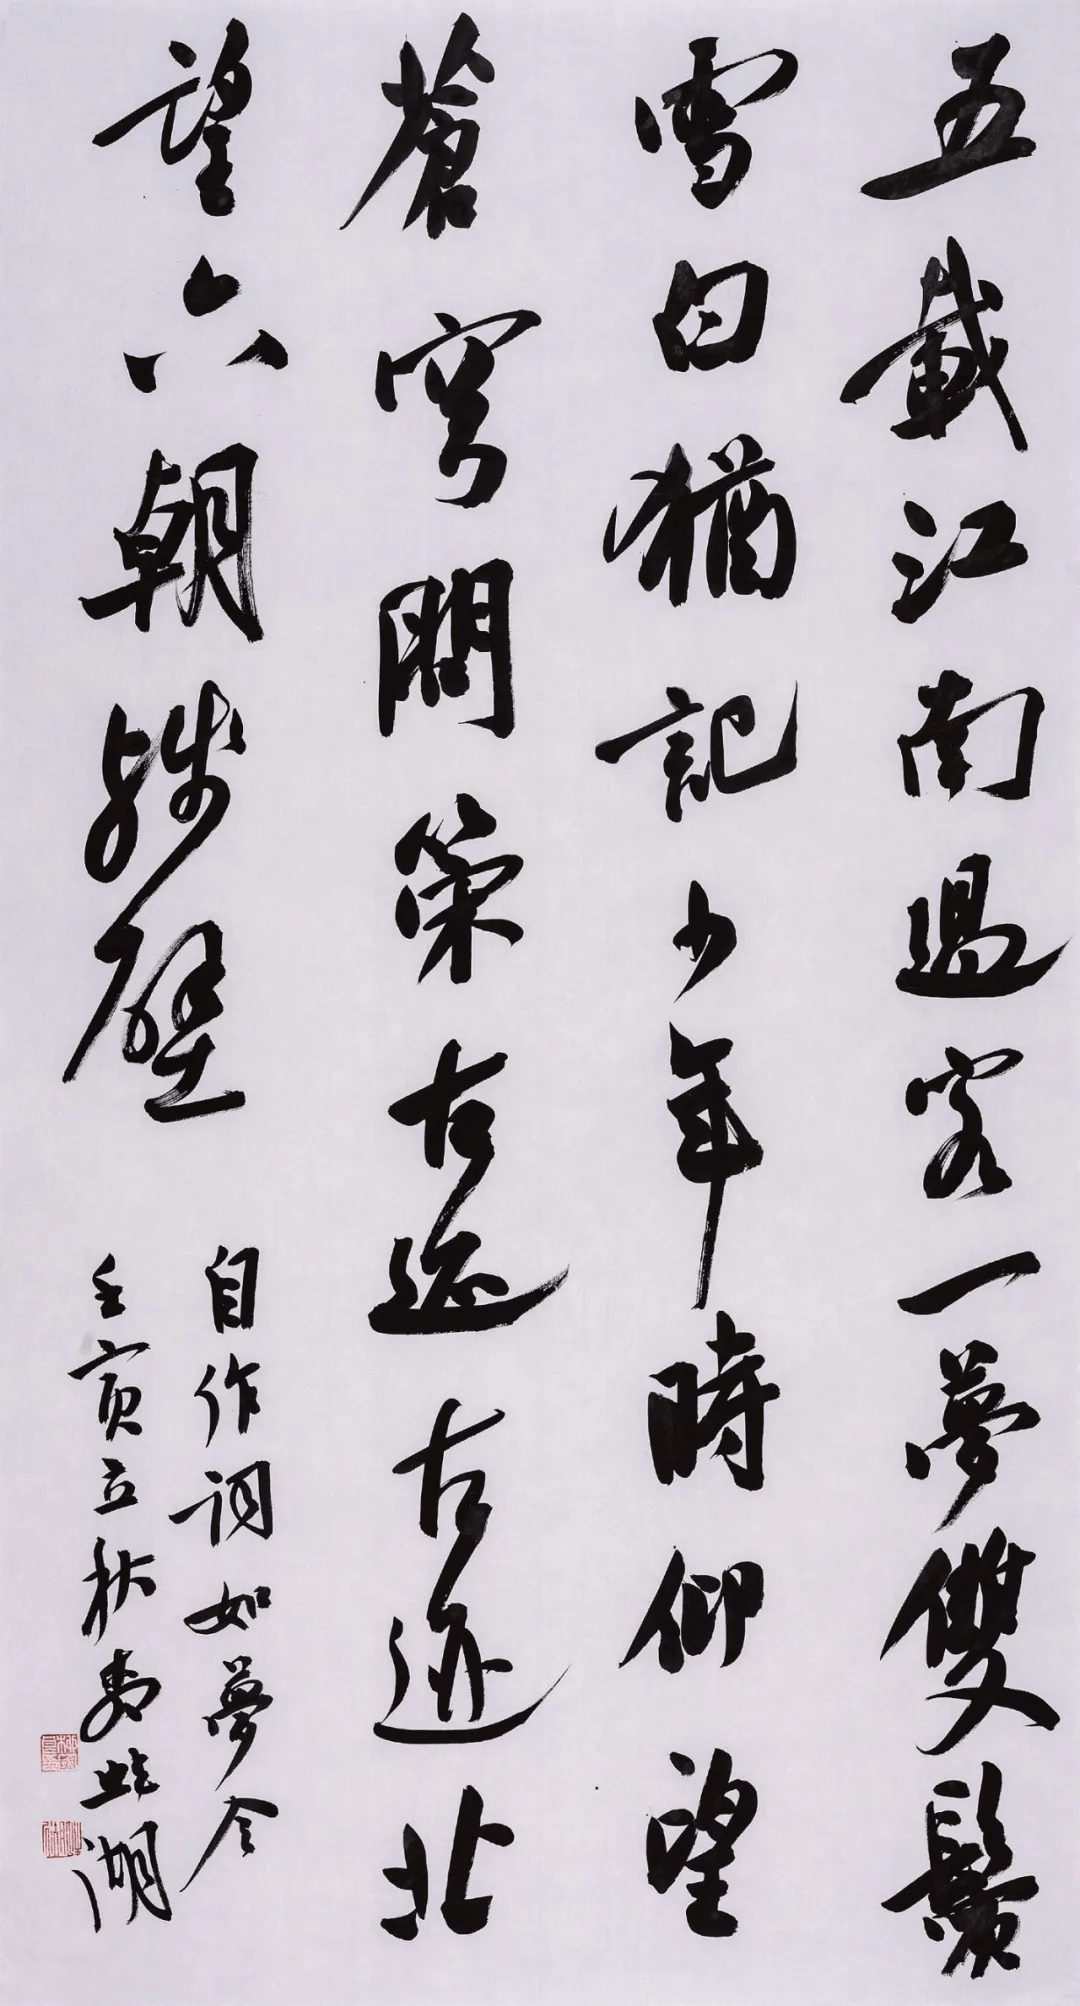 五載江南過客一夢雙鬢
雪白猶記少年時仰望
蒼穹問策古迹古迹北
望六朝殘壁
自作詞如夢令
壬寅立秋湖